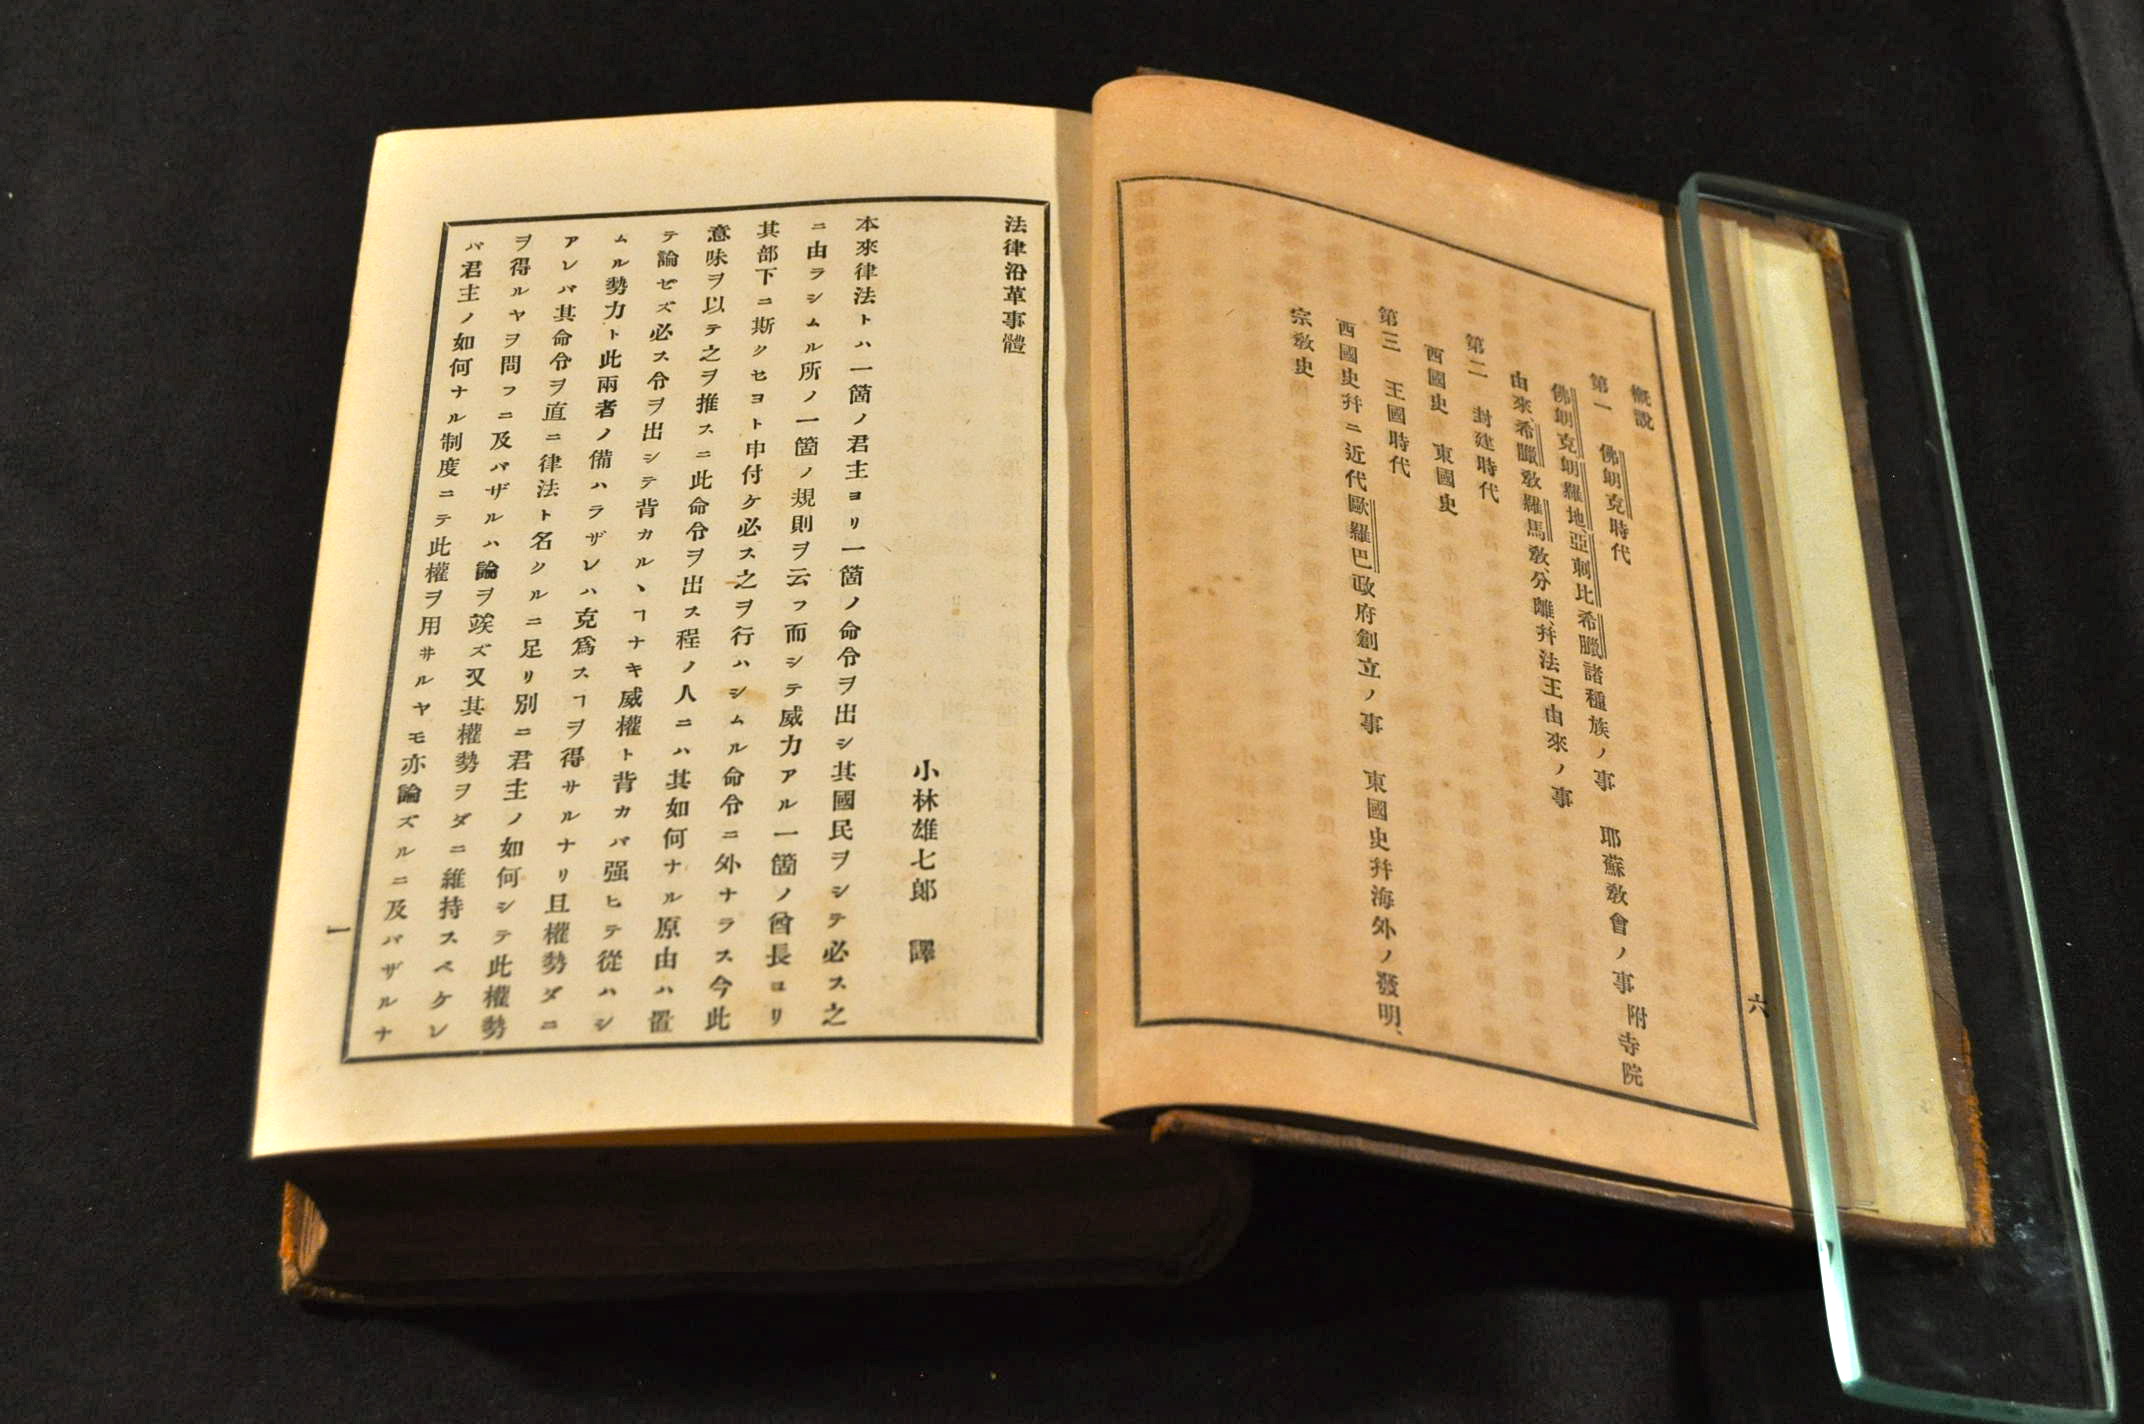 概說
第一　佛朗克時代
佛朗克、朗羅地、亞刺比、希臘諸種族ノ事　耶蘇敎會ノ事 附寺院
由來、希臘敎羅馬敎分離、幷法王由來ノ事
第二　封建時代
西國史　東國史
第三　王國時代
西國史幷ニ近代歐羅巴政府創立ノ事　東國史幷海外ノ發明、
宗敎史
六
法律沿革事體
小林雄七郎　譯
本來律法トハ一箇ノ君主ヨリ一箇ノ命令ヲ出シ其國民ヲシテ必ス之
ニ由ラシムル所ノ一箇ノ規則ヲ云フ而シテ威力アル一箇ノ酋長ヨリ
其部下ニ斯クセヨト申付ケ必ス之ヲ行ハシムル命令ニ外ナラス今此
意味ヲ以テ之ヲ推スニ此命令ヲ出ス程ノ人ニハ其如何ナル原由ハ置
テ論ゼズ必ス令ヲ出シテ背カルヽヿナキ威權ト背カバ强ヒテ從ハシ
ムル勢力ト此兩者ノ備ハラザレハ克爲スヿヲ得サルナリ且權勢ダニ
アレバ其命令ヲ直ニ律法ト名クルニ足リ別ニ君主ノ如何シテ此權勢
ヲ得ルヤヲ問フニ及バザルハ論ヲ竢ズ又其權勢ヲダニ維持スベケレ
バ君主ノ如何ナル制度ニテ此權ヲ用井ルヤモ亦論ズルニ及バザルナ
一